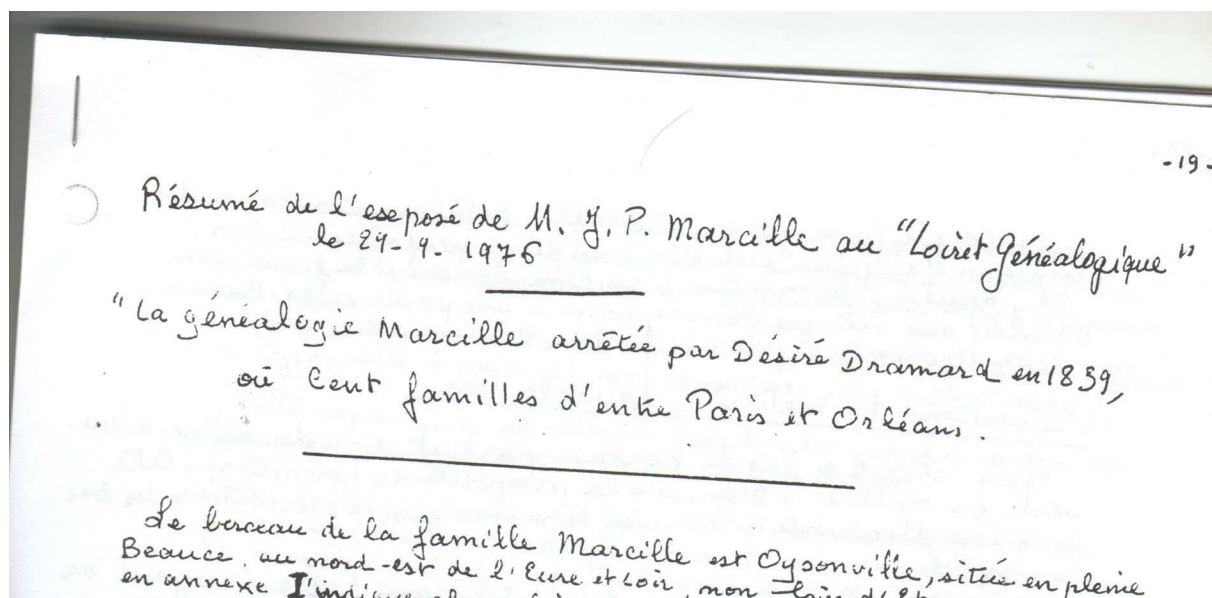 - 19 -
Résumé de l'exposé de M. J. P. Marcille au "Loiret Généalogique"
le 29-9-1976
"La généalogie Marcille arrêtée par Désiré Dramard en 1839,
où Cent familles d'entre Paris et Orléans.
Le berceau de la famille Marcille est Oysonville, située en pleine
Beauce au nord-est de l'Eure et Loir, non loin
en annexe I